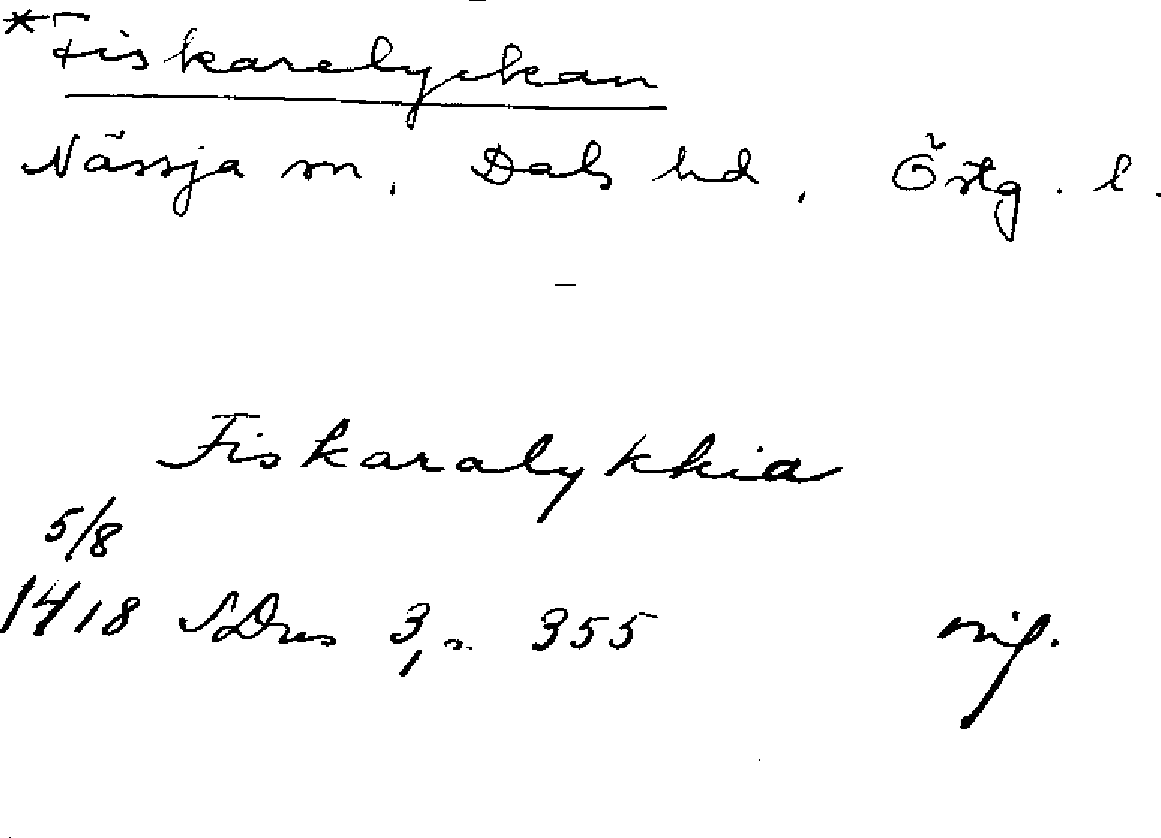 *Fiskarelyckan
Nässja sn, Dals hd, Östg. l.
Fiskaralykkia
5/8
1418 SDns 3, s. 355 orig.